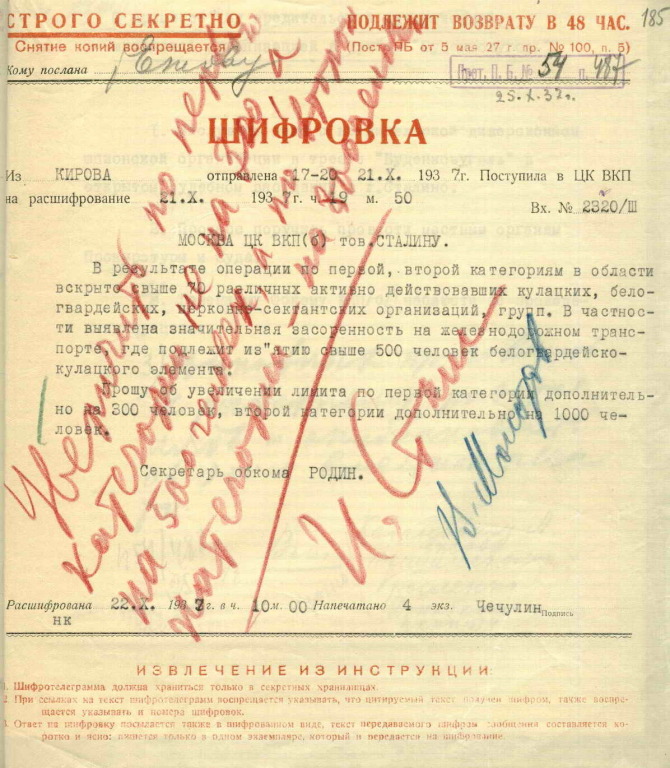 СТРОГО СЕКРЕТНО
Снятие копий воспрещается
ПОДЛЕЖИТ ВОЗВРАТУ В 48 ЧАС.
(Пост. ПБ от 5 мая 27 г. пр. № 100, п. 5)
185
Кому послана Ежову
Прот. П. Б. № 54 п. 487
25.X.37г.
ШИФРОВКА
Из КИРОВА отправлена 17-20 21.X. 1937г. Поступила в ЦК ВКП
на расшифрование 21.X. 1937г. ч. 19 м. 50
Вх. № 2320/Ш
МОСКВА ЦК ВКП(б) тов.СТАЛИНУ.
В результате операции по первой, второй категориям в области
вскрыто свыше 70 различных активно действовавших кулацких, бело-
гвардейских, церковно-сектантских организаций, групп. В частности
выявлена значительная засоренность на железнодорожном транс-
порте, где подлежит из"ятию свыше 500 человек белогвардейско-
кулацкого элемента.
Прошу об увеличении лимита по первой категории дополнитель-
но на 300 человек, второй категории дополнительно на 1000 че-
ловек.
Секретарь обкома РОДИН.
Увеличить по первой
категории не на 300, а
на 500 человек, а по второй
категории – на 800 человек
И. Сталин
В. Молотов
Расшифрована 22.X. 1937г. в ч. 10 м. 00 Напечатано 4 экз. Чечулин
Подпись
НК
ИЗВЛЕЧЕНИЕ ИЗ ИНСТРУКЦИИ:
1. Шифротелеграмма должна храниться только в секретных хранилищах.
2. При ссылках на текст шифротелеграмм воспрещается указывать, что цитируемый текст получен шифром, также воспре-
щается указывать и номера шифровок.
3. Ответ на шифровку посылается также в шифрованном виде, текст передаваемого шифром сообщения составляется ко-
ротко и ясно; пишется только в одном экземпляре, который и передается на шифрование.